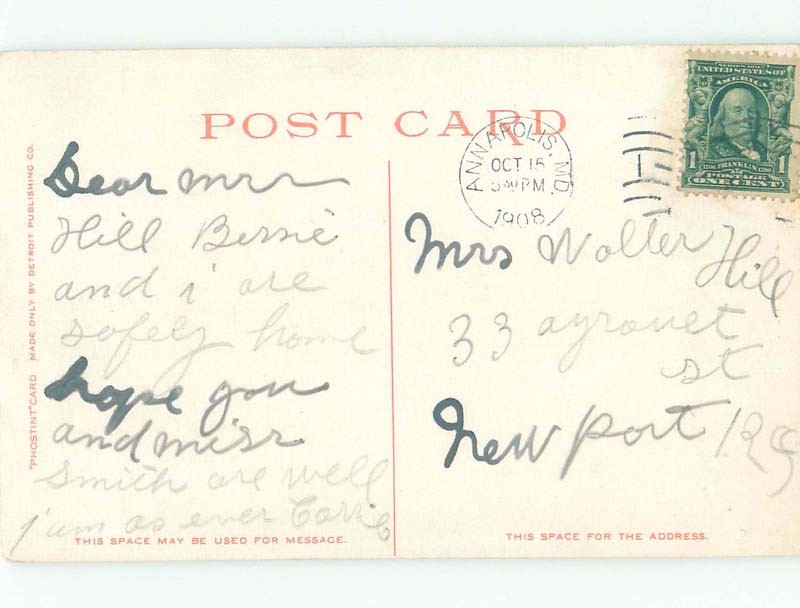 POST CARD
"PHOSTINT" CARD MADE ONLY BY DETROIT PUBLISHING CO.
ANNAPOLIS, MD.
OCT 15
PM
1908
SERIES 1902
UNITED STATES OF
AMERICA
1 FRANKLIN 1
POSTAGE
ONE CENT
Dear Mrs
Hill
and i are
safely home
hope you
and Miss
Smith are well
i am as ever Carrie
THIS SPACE MAY BE USED FOR MESSAGE.
Mrs Walter Hill
33
st
New port
THIS SPACE FOR THE ADDRESS.